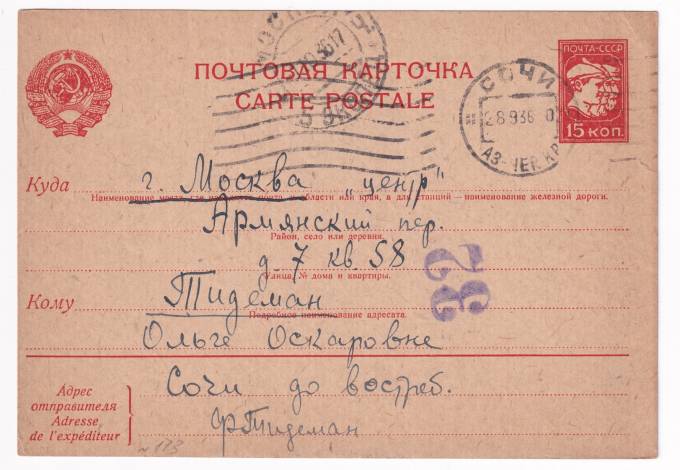 ПОЧТА-СССР
15 КОП.
ПОЧТОВАЯ КАРТОЧКА
CARTE POSTALE
СОЧИ
28 9 36
АЗ-ЧЕР. КР.
МОСКВА
Куда
г. Москва „центр"
Наименование места, где находится почта, и области или края, а для станций — наименование железной дороги.
Армянский пер.
Район, село или деревня.
д. 7 кв. 58
Улица, № дома и квартиры.
32
Кому
Тидеман
Подробное наименование адресата.
Ольге Оскаровне
Адрес
отправителя
Adresse
de l'expéditeur
Сочи до востреб.
Р.Тидеман